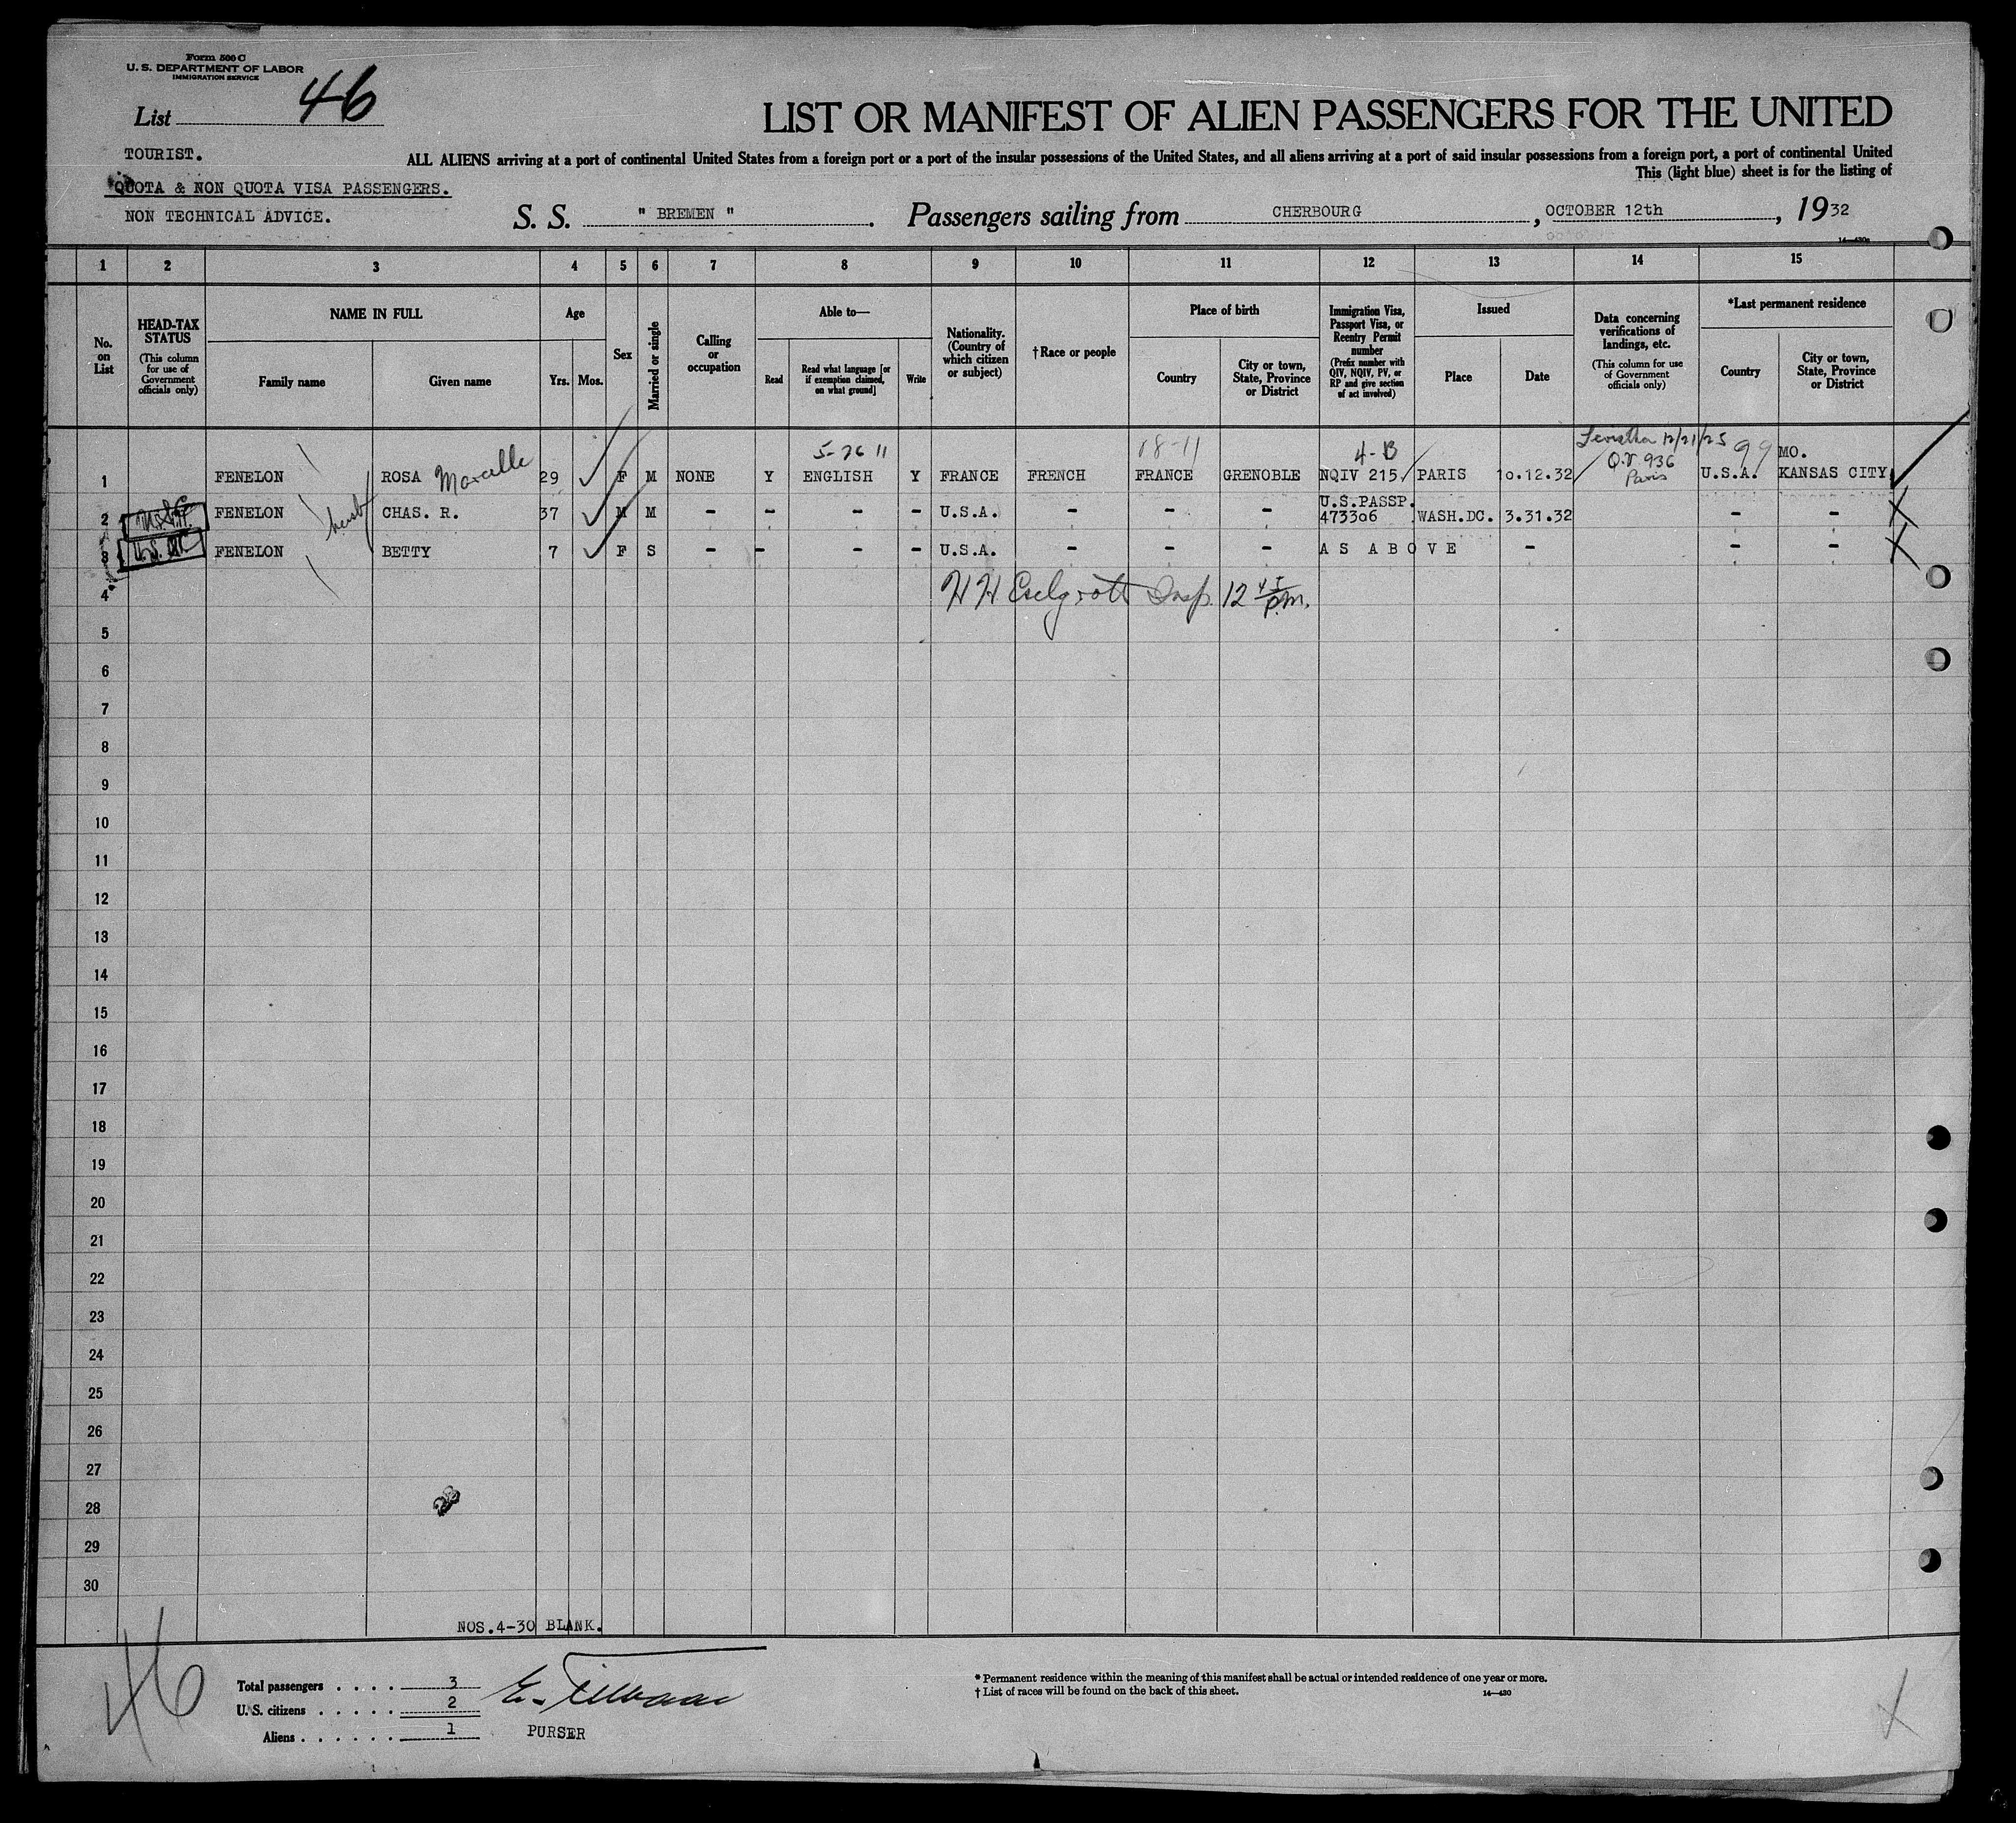 Form 500 C
U. S. DEPARTMENT OF LABOR
IMMIGRATION SERVICE
List 46
LIST OR MANIFEST OF ALIEN PASSENGERS FOR THE UNITED
TOURIST.
ALL ALIENS arriving at a port of continental United States from a foreign port or a port of the insular possessions of the United States, and all aliens arriving at a port of said insular possessions from a foreign port, a port of continental United
This (light blue) sheet is for the listing of
QUOTA & NON QUOTA VISA PASSENGERS.
NON TECHNICAL ADVICE.
S. S. " BREMEN " . Passengers sailing from CHERBOURG , OCTOBER 12th , 1932
14—430a
1 2 3 4 5 6 7 8 9 10 11 12 13 14 15
No. on List
HEAD-TAX STATUS
(This column for use of Government officials only)
NAME IN FULL
Family name
Given name
Age
Yrs. Mos.
Sex
Married or single
Calling or occupation
Able to—
Read
Read what language [or if exemption claimed, on what ground]
Write
Nationality. (Country of which citizen or subject)
† Race or people
Place of birth
Country
City or town, State, Province or District
Immigration Visa, Passport Visa, or Reentry Permit number
(Prefix number with QIV, NQIV, PV, or RP and give section of act involved)
Issued
Place
Date
Data concerning verifications of landings, etc.
(This column for use of Government officials only)
*Last permanent residence
Country
City or town, State, Province or District
5-26 11 4-B 12/21/25 99 MO.
1 FENELON ROSA Marcelle 29 F M NONE Y ENGLISH Y FRANCE FRENCH FRANCE GRENOBLE NQIV 215 PARIS 10.12.32 Q.V. 936 Paris U.S.A. KANSAS CITY
U.S.PASSP.
2 FENELON husb CHAS. R. 37 M M - - - - U.S.A. - - - 473306 WASH.DC. 3.31.32 - -
3 FENELON BETTY 7 F S - - - - U.S.A. - - - A S A B O V E - - -
4 H H Insp. 12 45 p.m.
5
6
7
8
9
10
11
12
13
14
15
16
17
18
19
20
21
22
23
24
25
26
27
28
29
30
NOS.4-30 BLANK.
46
Total passengers . . . . 3
U. S. citizens . . . . . 2
Aliens . . . . . . 1
PURSER
* Permanent residence within the meaning of this manifest shall be actual or intended residence of one year or more.
† List of races will be found on the back of this sheet.
14—430